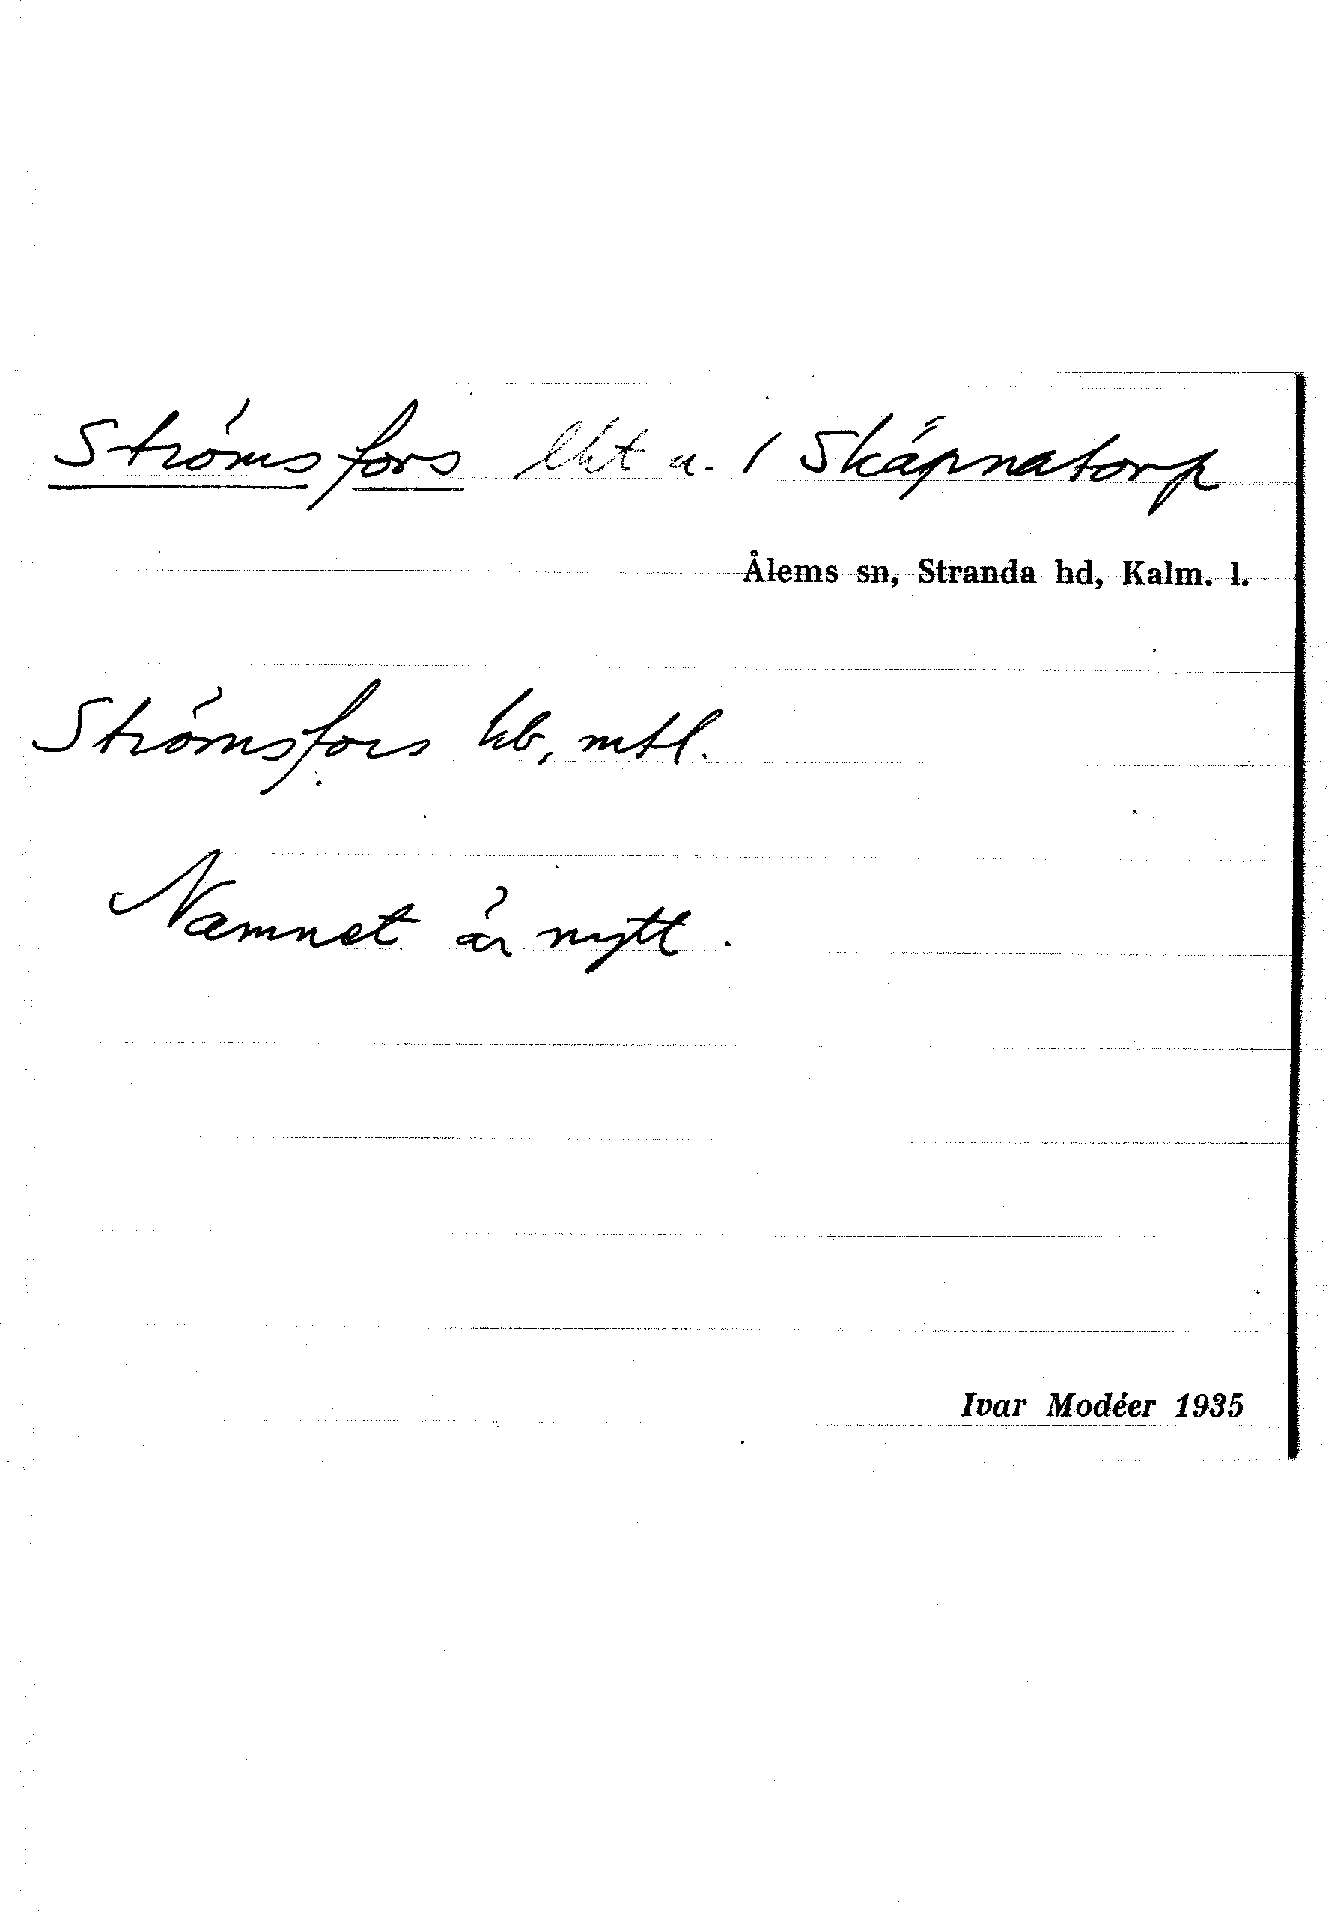 Strömsfors lht u. / Skäpnatorp
Ålems sn, Stranda hd, Kalm. l.
Strömsfors kb, mtl.
Namnet är nytt.
Ivar Modéer 1935